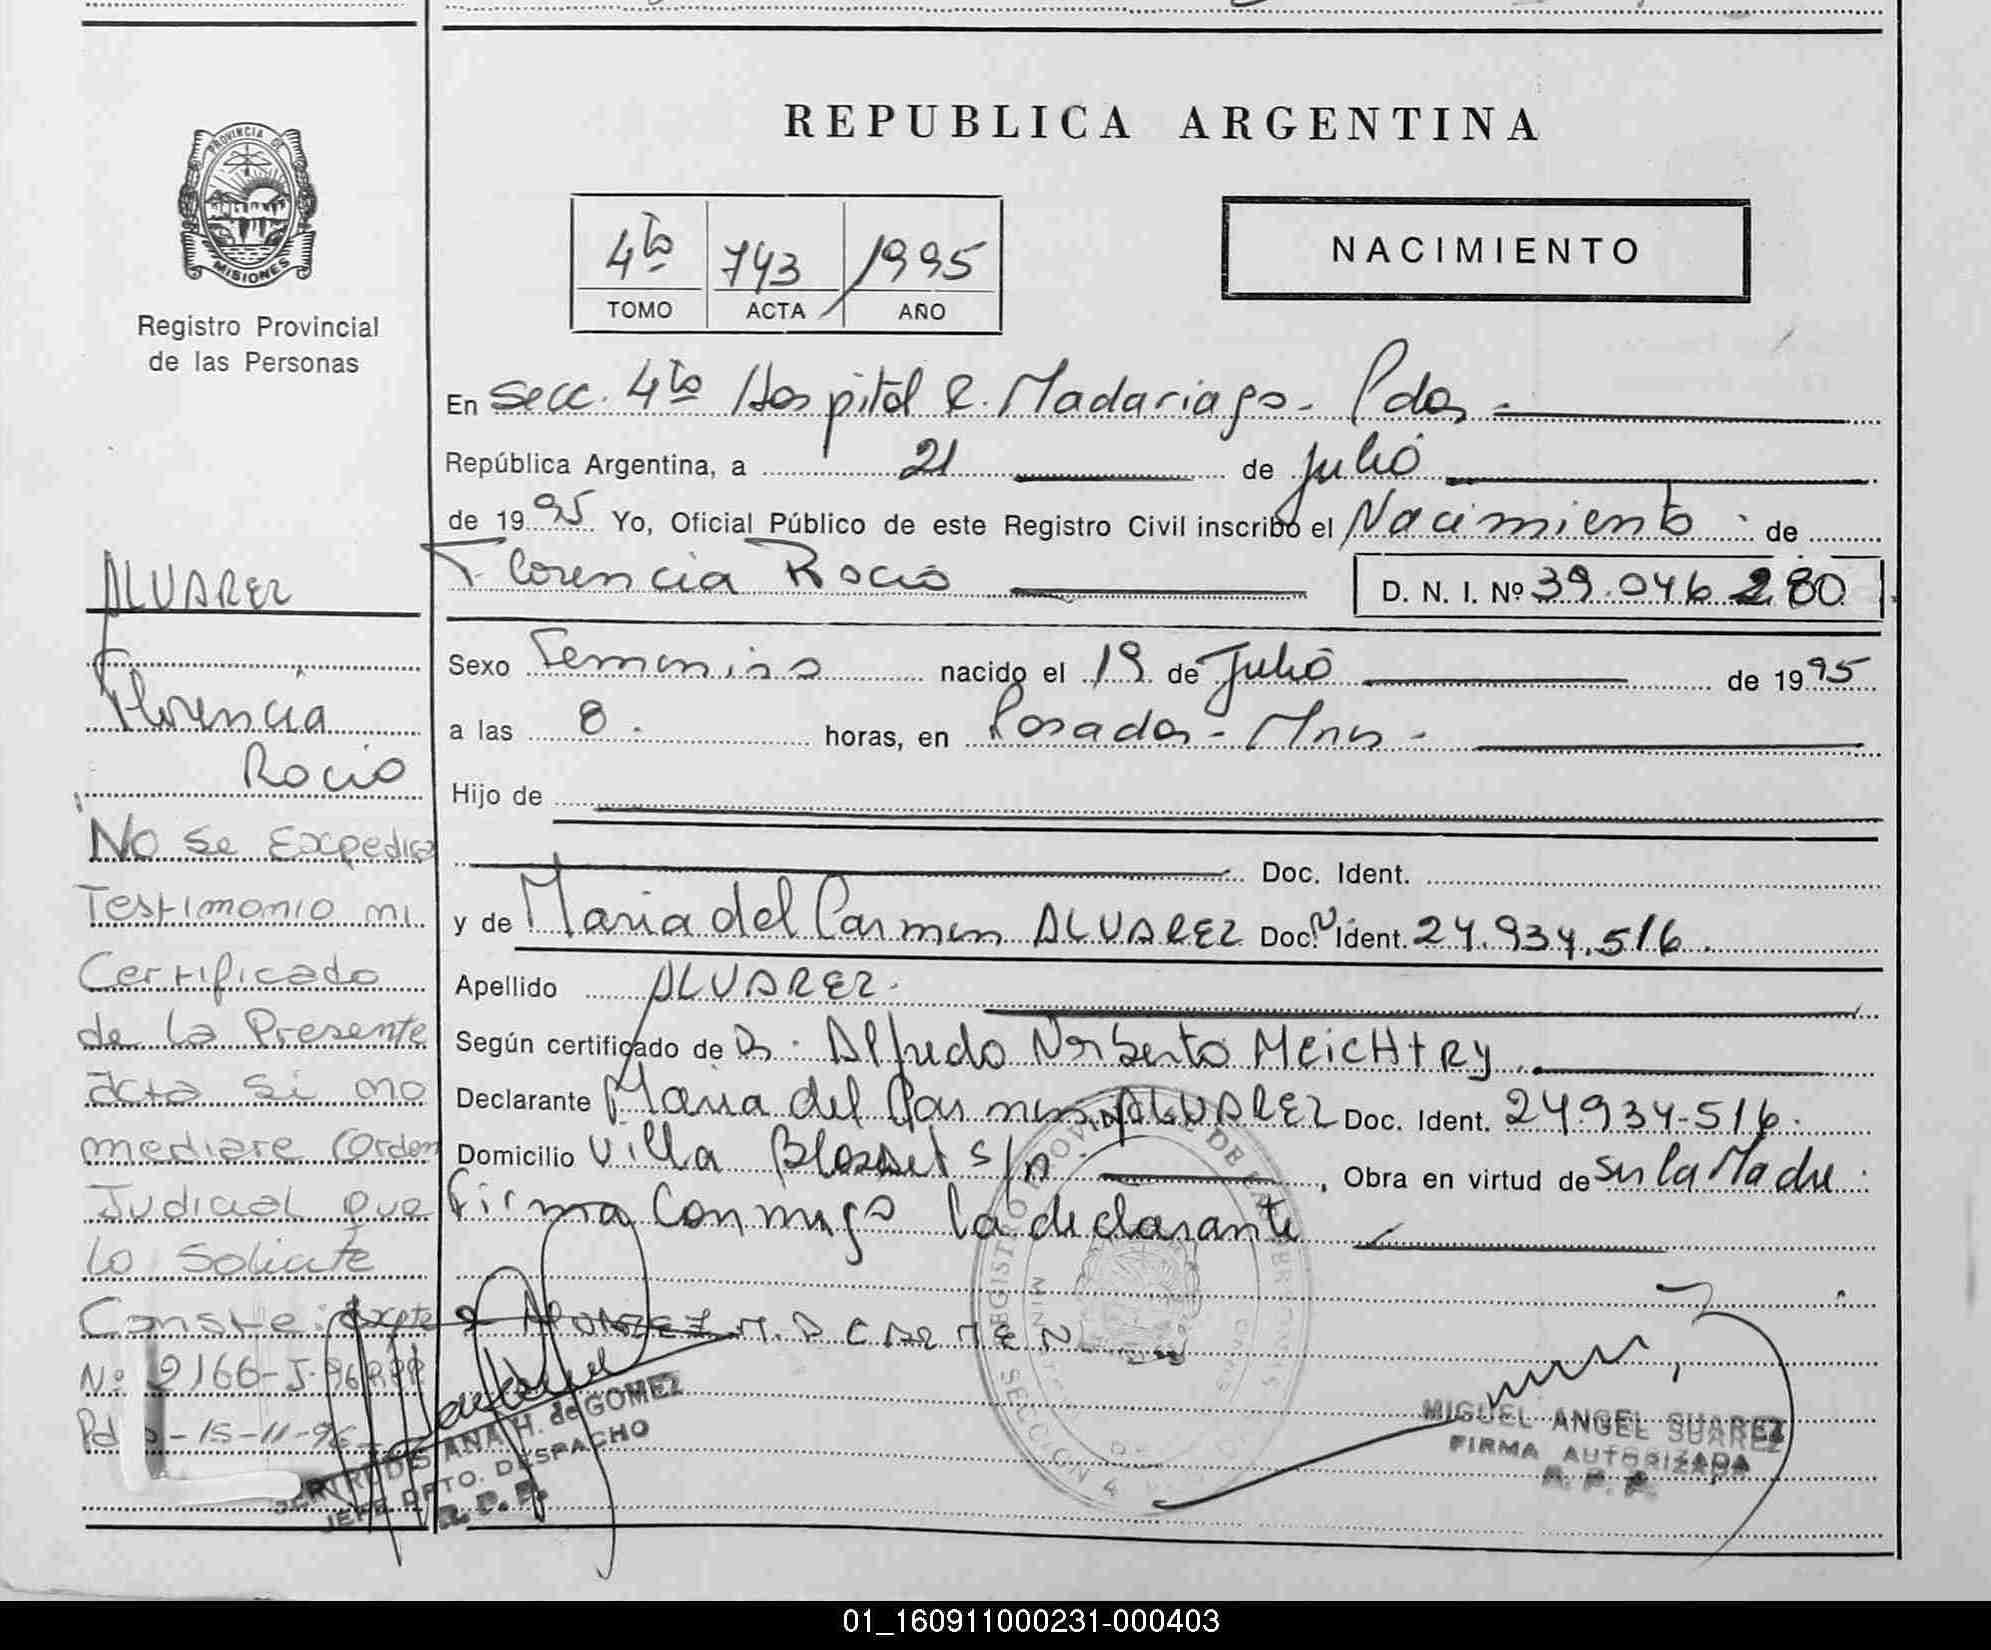 REPUBLICA ARGENTINA
PROVINCIA DE
MISIONES
Registro Provincial
de las Personas
4to 743 1995
TOMO ACTA AÑO
NACIMIENTO
En Secc. 4to Hospital R. Madariaga - Pdas -
República Argentina, a 21 de Julio
de 1995 Yo, Oficial Público de este Registro Civil inscribo el Nacimiento de
Florencia Rocio D. N. I. Nº 39.046.280
Sexo Femenino nacido el 19 de Julio de 1995
a las 8. horas, en Posadas - Mnes -
Hijo de
Doc. Ident.
y de Maria del Carmen ALVAREZ Doc. Ident. 24.934.516.
Apellido ALVAREZ.
Según certificado de Dr. Alfredo Norberto MEicHtRy
Declarante Maria del Carmen ALVAREZ Doc. Ident. 24.934.516.
Domicilio Villa Blosset s/n , Obra en virtud de ser la Madre.
Firma Conmigo la declarante
ALVAREZ M. D CARMEN
ALVAREZ
Florencia
Rocio
No Se Expedira
Testimonio ni
Certificado
de la Presente
acta Si no
mediare Orden
Judicial que
lo Solicite
Conste: Expte
Nº 2166-J-96 RPP
Pdas-15-11-96
GERTRUDIS ANA H. de GOMEZ
JEFE DPTO. DESPACHO
R. P. P.
REGISTRO PROVINCIAL DE LAS PERSONAS
SECCION 4
MIGUEL ANGEL SUAREZ
FIRMA AUTORIZADA
R. P. P.
01_160911000231-000403